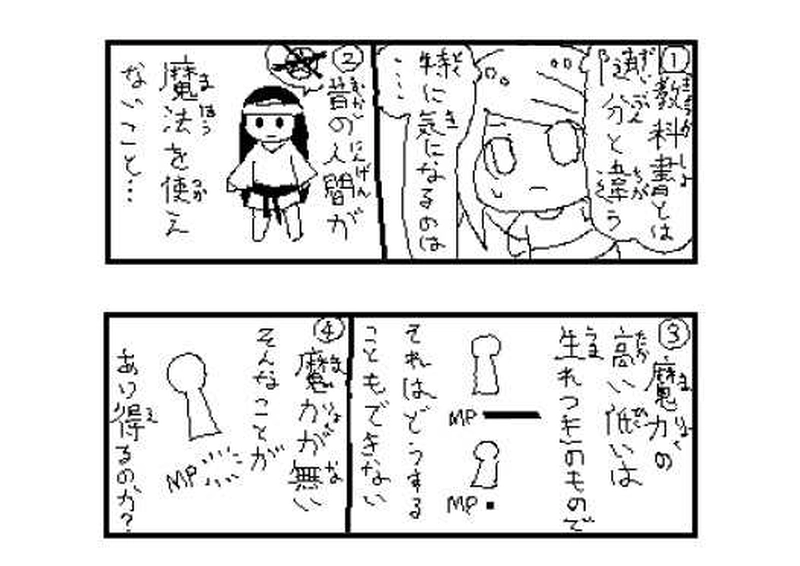 ①
教科書とは
随分と違う
特に気になるのは
……
②
昔の人間が
魔法を使え
ないこと…
③
魔力の
高い低いは
生れつきのもので
MP
MP
それはどうする
こともできない
④
魔力が無い
そんなことが
MP
あり得るのか?